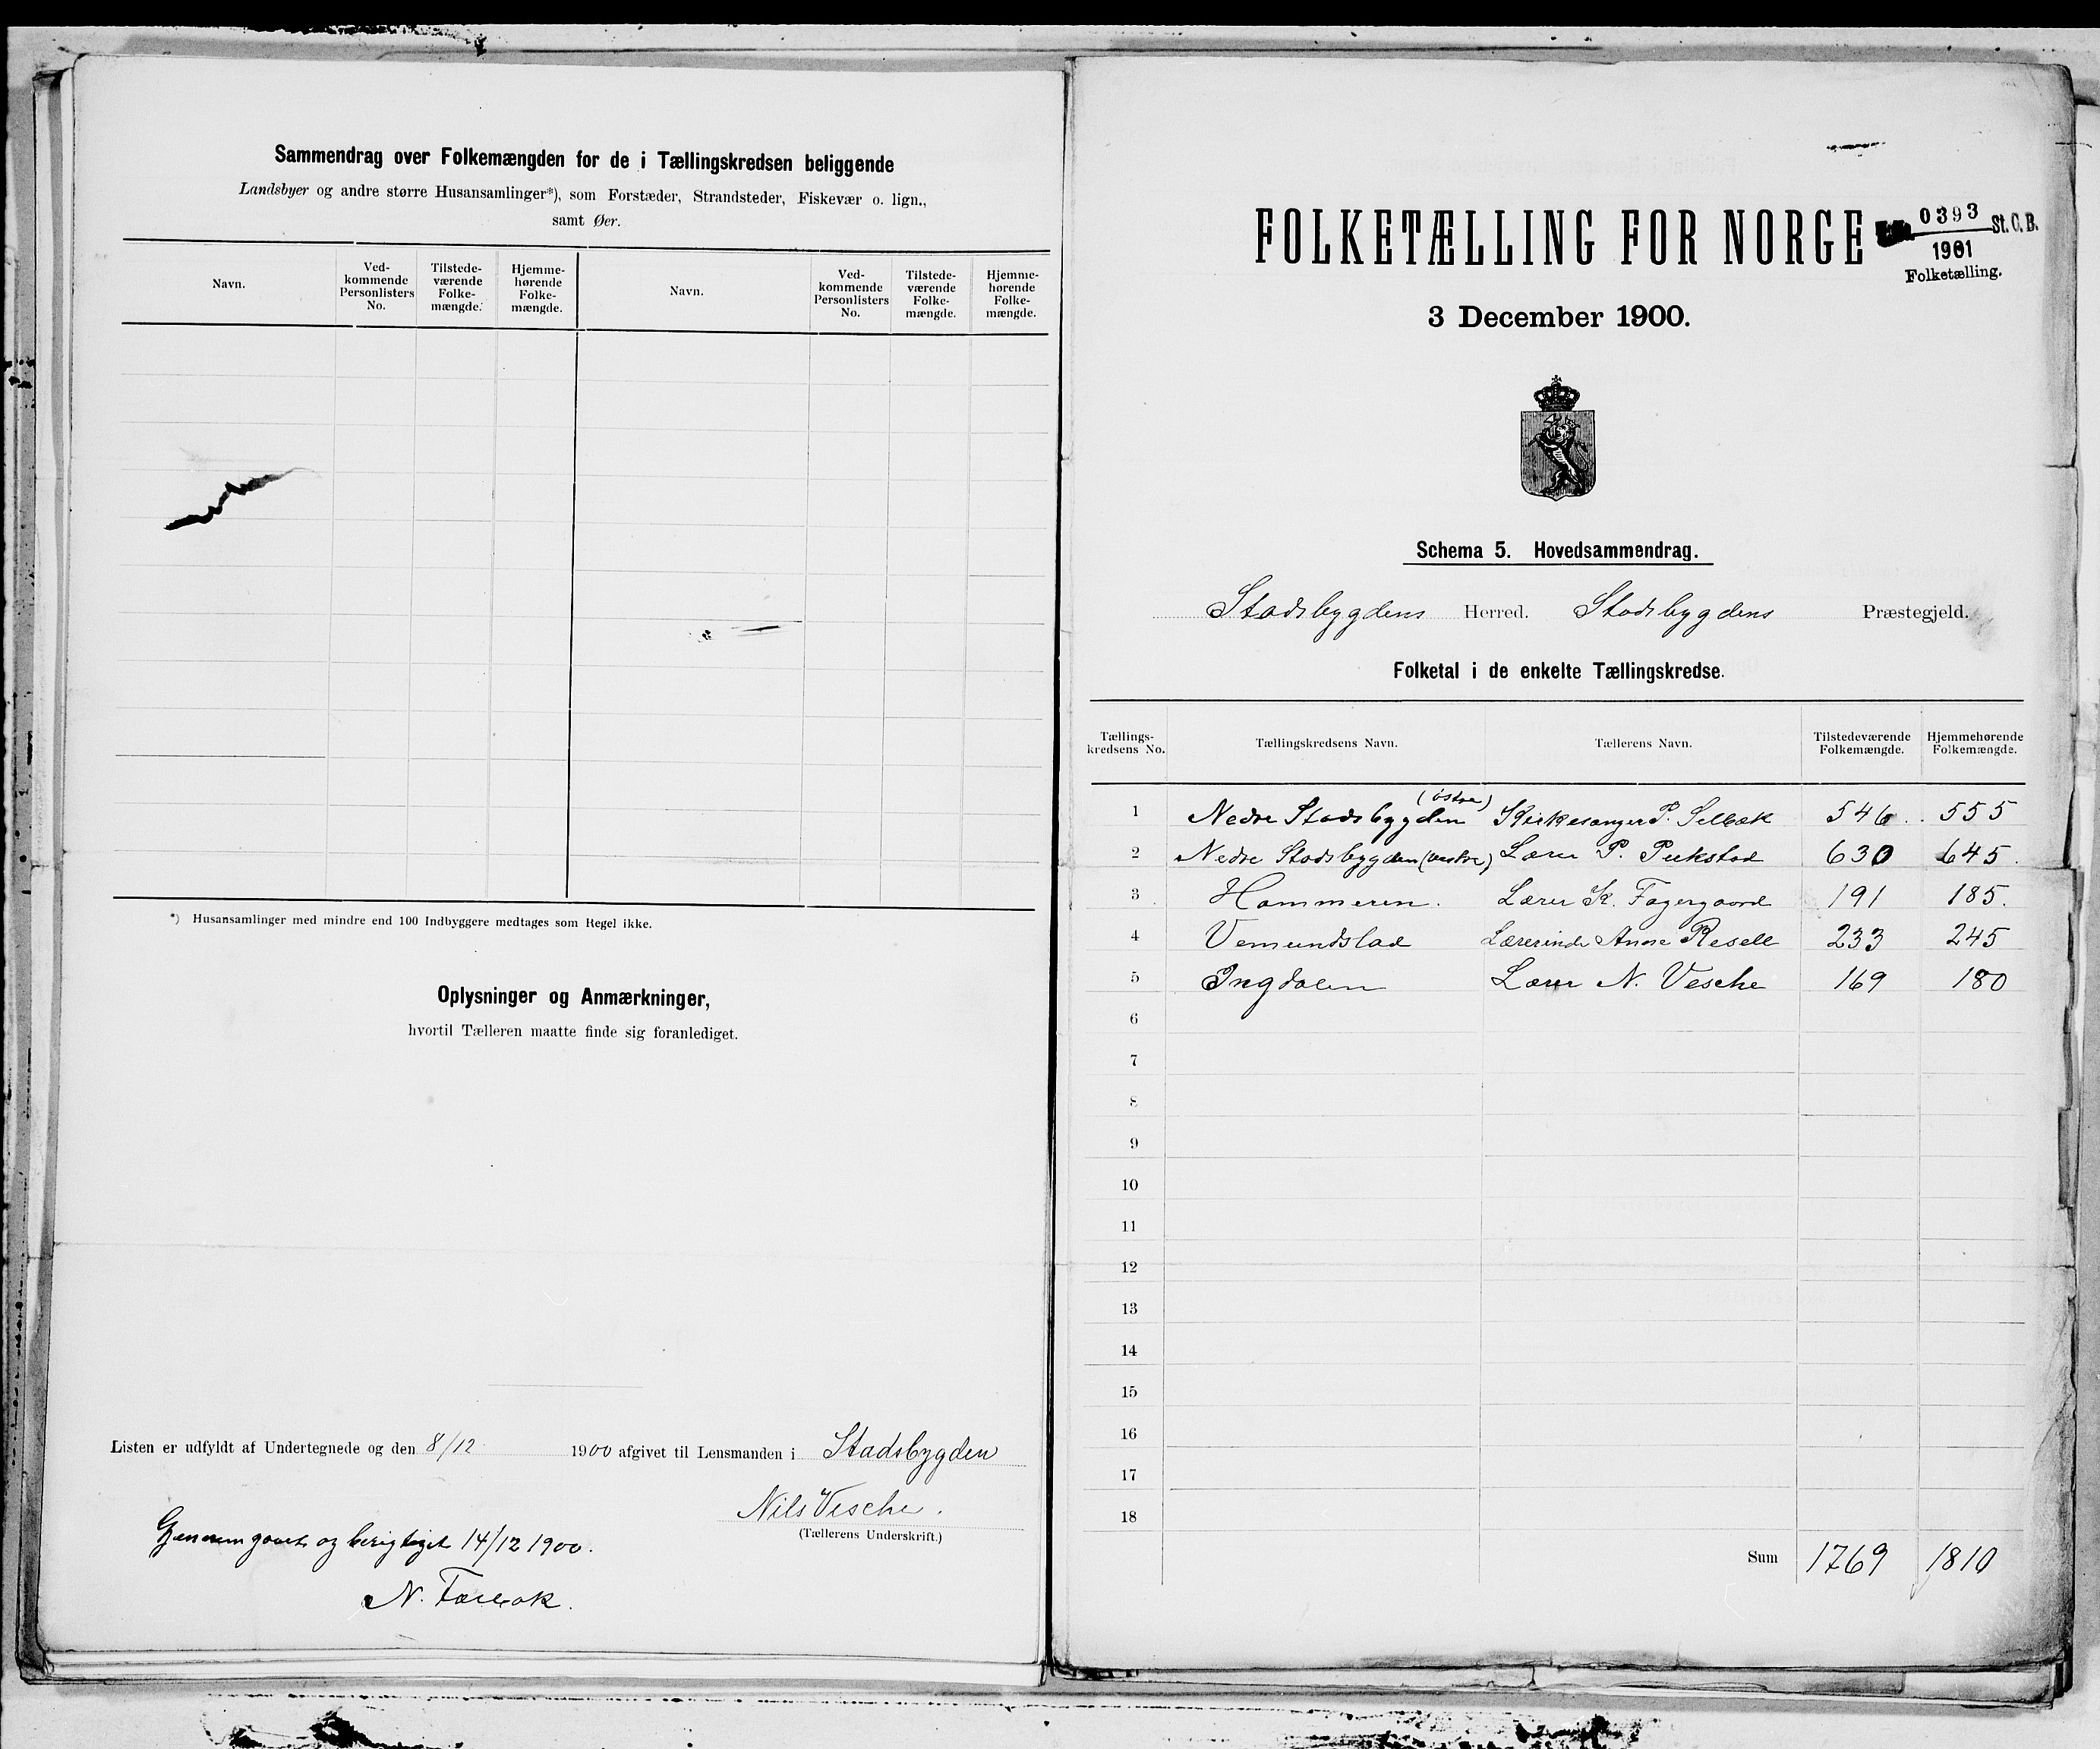 Sammendrag over Folkemængden for de i Tællingskredsen beliggende
Landsbyer og andre større Husansamlinger*), som Forstæder, Strandsteder, Fiskevær o. lign.,
samt Øer.
Navn. Ved-kommende Personlisters No. Tilstede-værende Folke-mængde. Hjemme-hørende Folke-mængde. Navn. Ved-kommende Personlisters No. Tilstede-værende Folke-mængde. Hjemme-hørende Folke-mængde.
*) Husansamlinger med mindre end 100 Indbyggere medtages som Regel ikke.
Oplysninger og Anmærkninger,
hvortil Tælleren maatte finde sig foranlediget.
Listen er udfyldt af Undertegnede og den 8/12 1900 afgivet til Lensmanden i Stadsbygden
Nils Vesche.
(Tællerens Underskrift.)
Gjennemgaaet og berigtiget 14/12 1900.
N.
FOLKETÆLLING FOR NORGE
0393 St. O. B.
1901
Folketælling.
3 December 1900.
Schema 5. Hovedsammendrag.
Stadsbygdens Herred. Stadsbygdens Præstegjeld.
Folketal i de enkelte Tællingskredse.
Tællings-kredsens No. Tællingskredsens Navn. Tællerens Navn. Tilstedeværende Folkemængde. Hjemmehørende Folkemængde.
1 Nedre Stadsbygden (østre) Kirkesanger P. Selbæk 546 555
2 Nedre Stadsbygden (vestre) Lærer P. 630 645
3 Hammeren. Lærer K. Fagergaard 191 185.
4 Vemundstad Lærerinde Anne Resell 233 245
5 Ingdalen Lærer N. Vesche 169 180
6
7
8
9
10
11
12
13
14
15
16
17
18
Sum 1769 1810